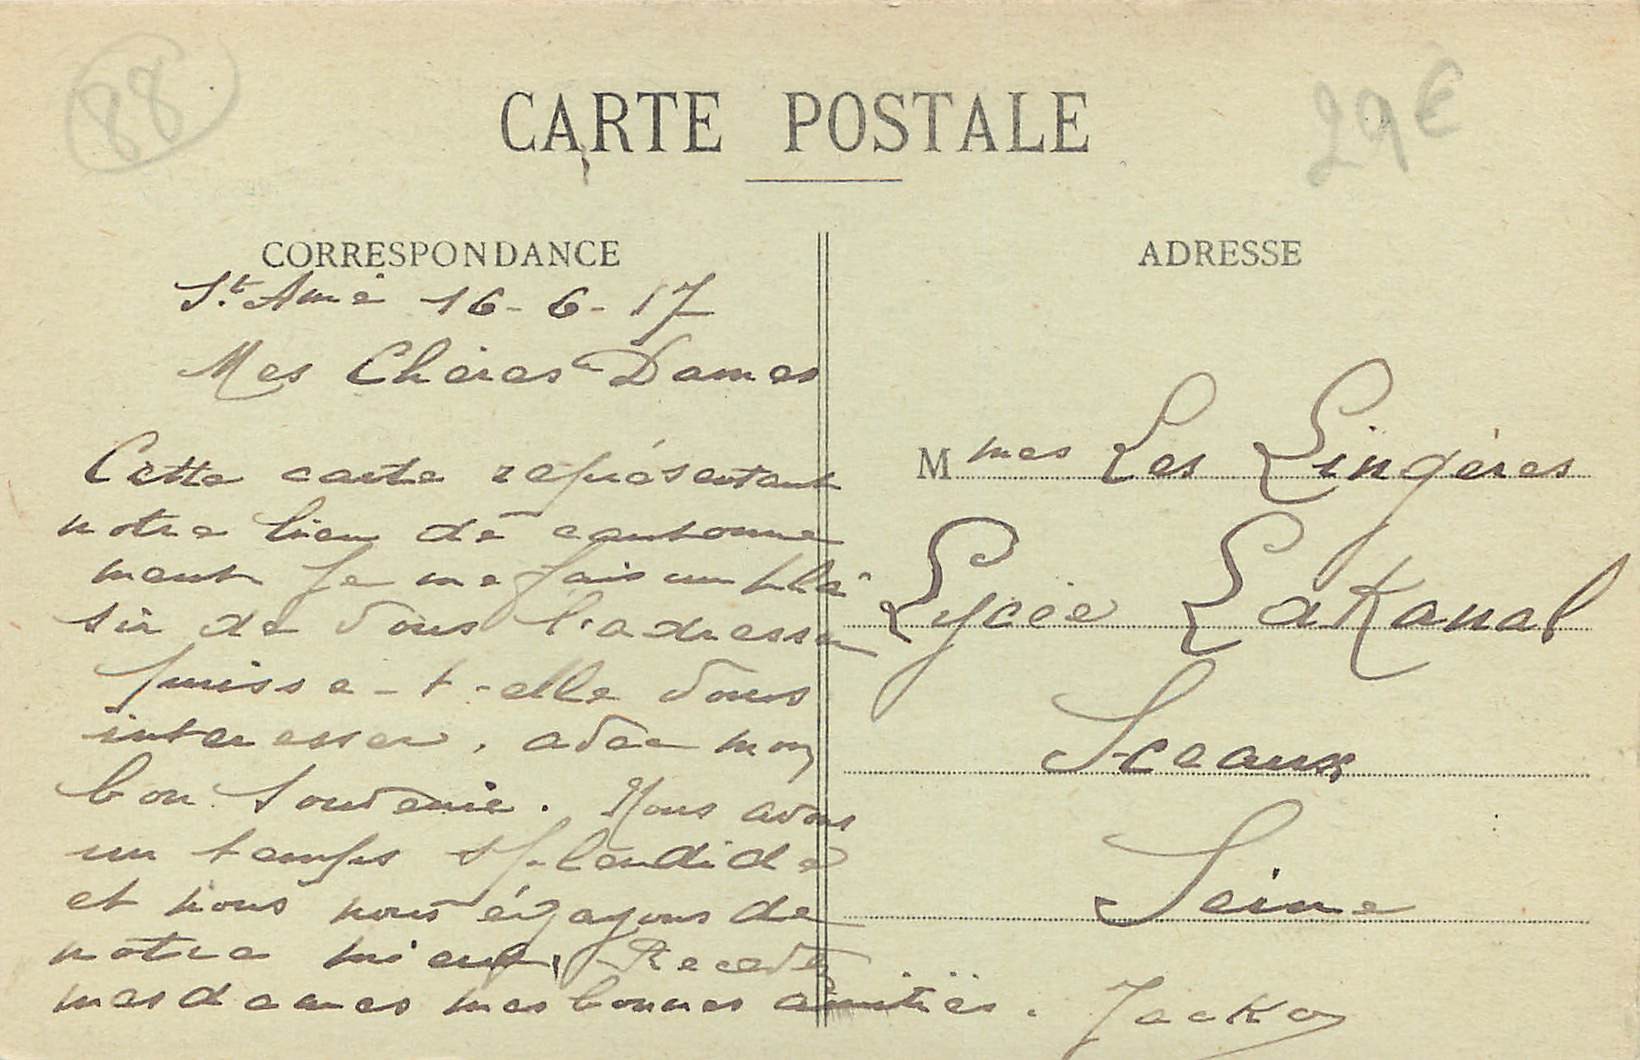 88
CARTE POSTALE
29€
CORRESPONDANCE
St. Amé 16-6-17
Mes Chères Dames
Cette carte représentant
notre lieu de cantonne
ment je me fais un plai
sir de vous l'adresser
puisse-t-elle vous
interesser, avec mon
bon souvenir. Nous avons
un temps splendide
et nous nous égayons de
notre mieux, Recevez
mesdames mes bonnes amitiés. Jacko
ADRESSE
Mmes Les Lingères
Lycée LaKanal
Sceaux
Seine